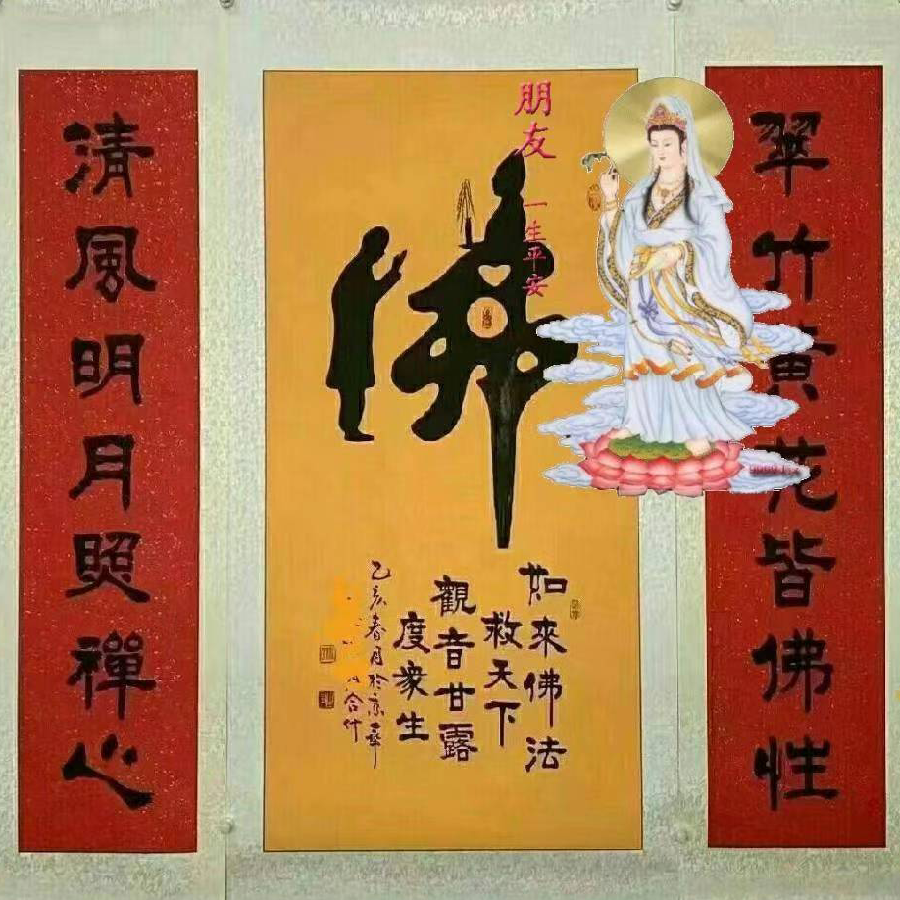 翠竹黃花皆佛性
朋友
一生平安
佛
如來佛法
救天下
觀音甘露
度衆生
乙亥春月於京華
合什
清風明月照禪心